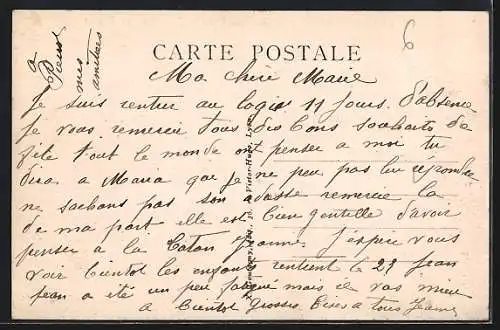 CARTE POSTALE
6
Ma chère Marie
Je suis rentrer au logis 11 jours d'absence
Je vous remercie tous des bons souhaits de
fête tout le monde ont penser a moi tu
dira a Maria que je ne peu pas lui répondre
ne sachons pas son adresse remercie la
de ma part elle est bien gentille d'avoir
penser a la Jeanne. J'espère vous
voir bientot les enfants rentient le 21 Jean
Jean a été un peu fatigué mais il vas mieu
a Bientot Grosses Bises a tous Jeanne
a
mes
amities
Victor-Hugo, Lyon